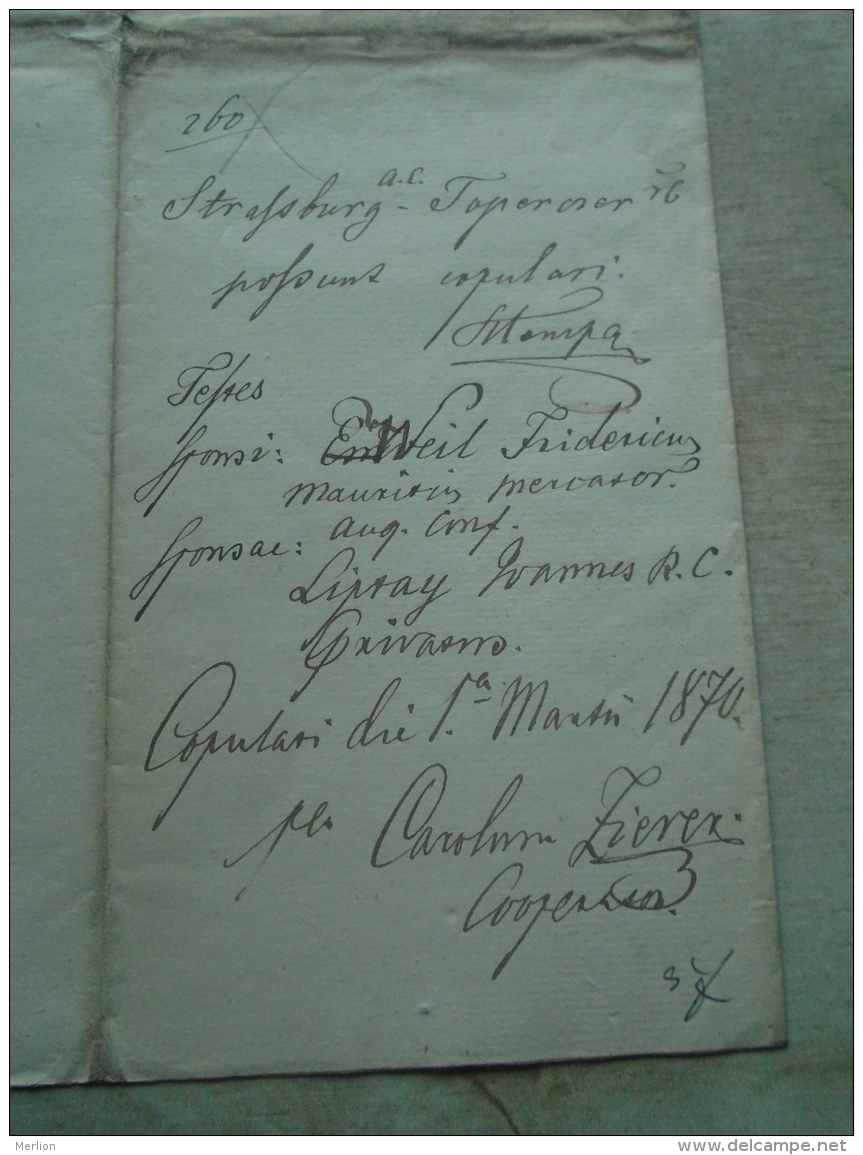 260
a.c. rc
Strassburg - Toperczer
possunt copulari.
Stempa
Testes
sponsi: Weil Fridericus
Mauritius mercator.
Aug. Conf.
Sponsae:
Liptay Joannes R. C.
privatus.
Copulati die 1.a Martii 1870.
per Carolum Zierer
Cooperator.
Merlion
www.delcampe.net